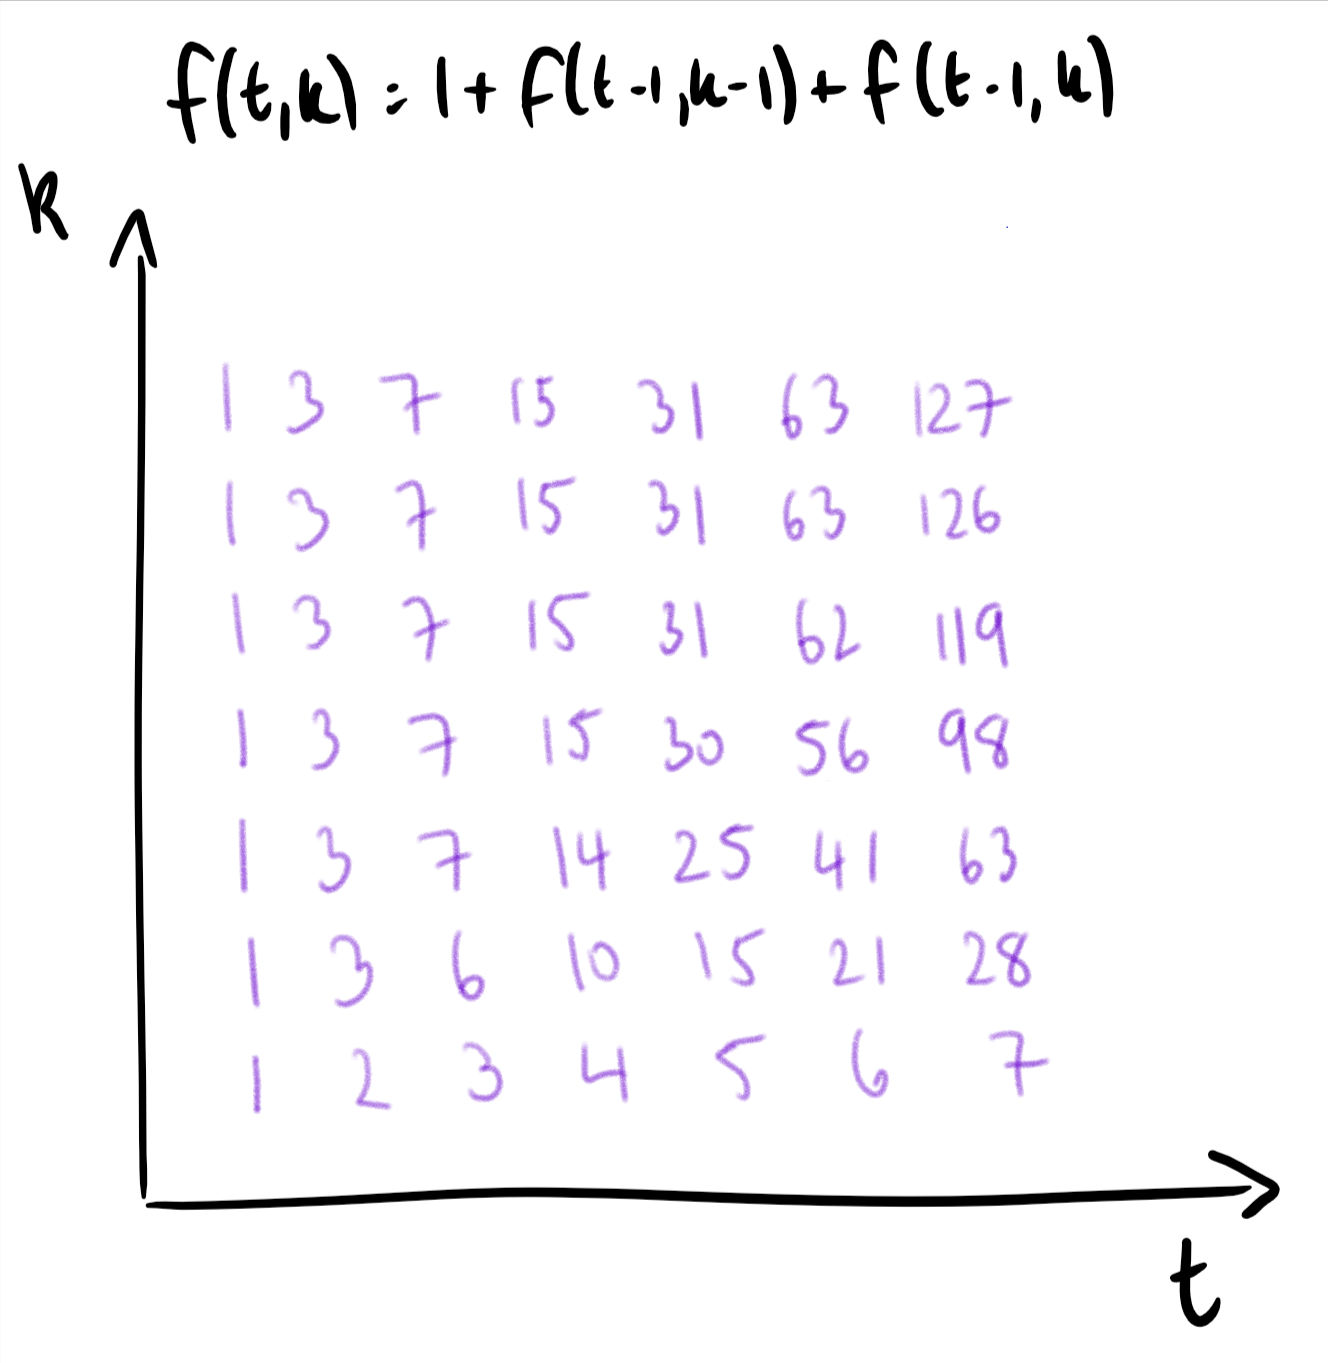 f(t,k) = 1 + f(t-1,k-1) + f(t-1,k)
k
1 3 7 15 31 63 127
1 3 7 15 31 63 126
1 3 7 15 31 62 119
1 3 7 15 30 56 98
1 3 7 14 25 41 63
1 3 6 10 15 21 28
1 2 3 4 5 6 7
t